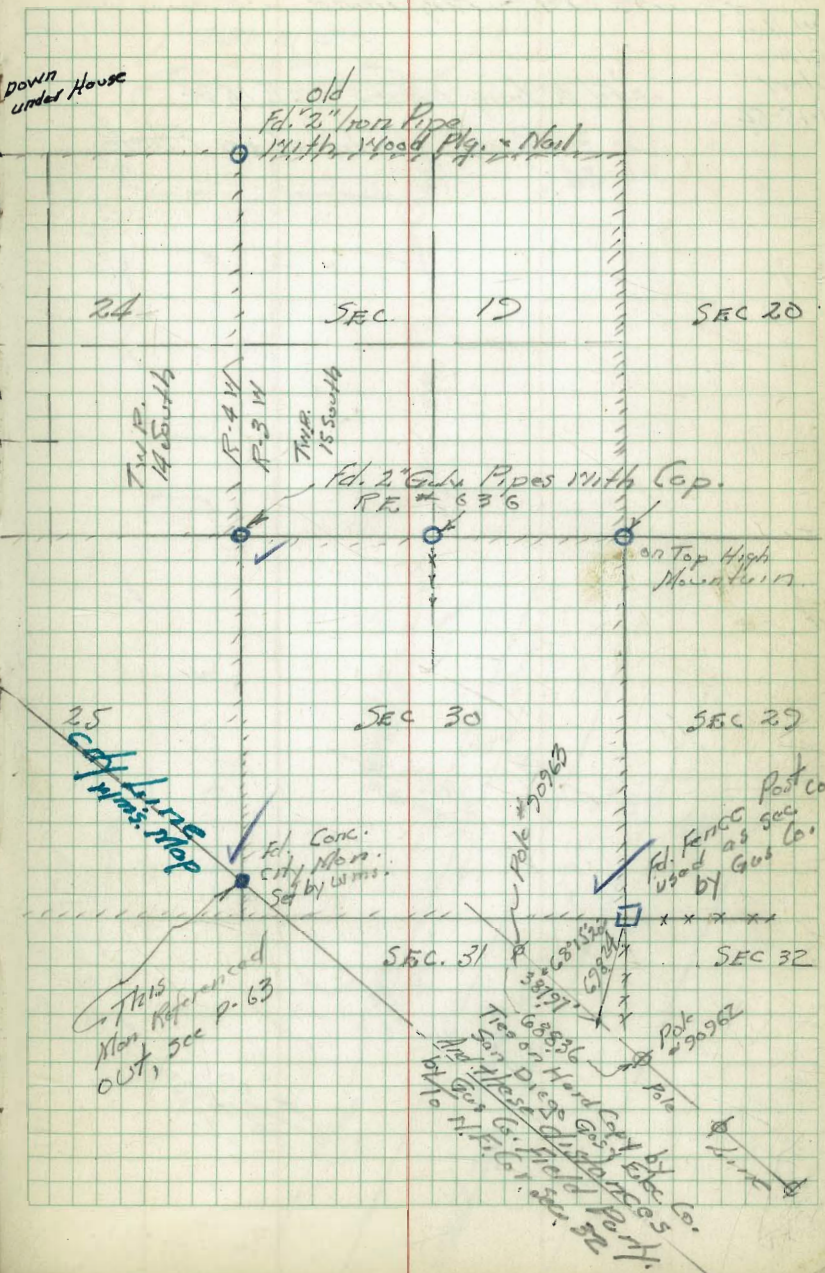 Down
under House
old
Fd. 2" Iron Pipe
With Wood Plg. & Nail
24
SEC. 19
SEC 20
TWP.
14 South
R-4 W
R-3 W
TWP.
15 South
Fd. 2" Galv. Pipes With Cap.
RE # 636
on Top High
Mountain.
25
SEC 30
SEC 29
City Line
Wms. Map
Fd. Conc.
City Mon.
Set by Wms.
Pole # 90963
Fd. Fence Post
used as sec.
by Gas Co.
SEC. 31
SEC 32
This
Mon Referenced
out, see p-63
688.36
Pole
#90962
Pole
Line
Ties on Hard Copy by
San Diego Gas & Elec. Co.
And these distances
by Gas Co. Field Party.
Sec. 32